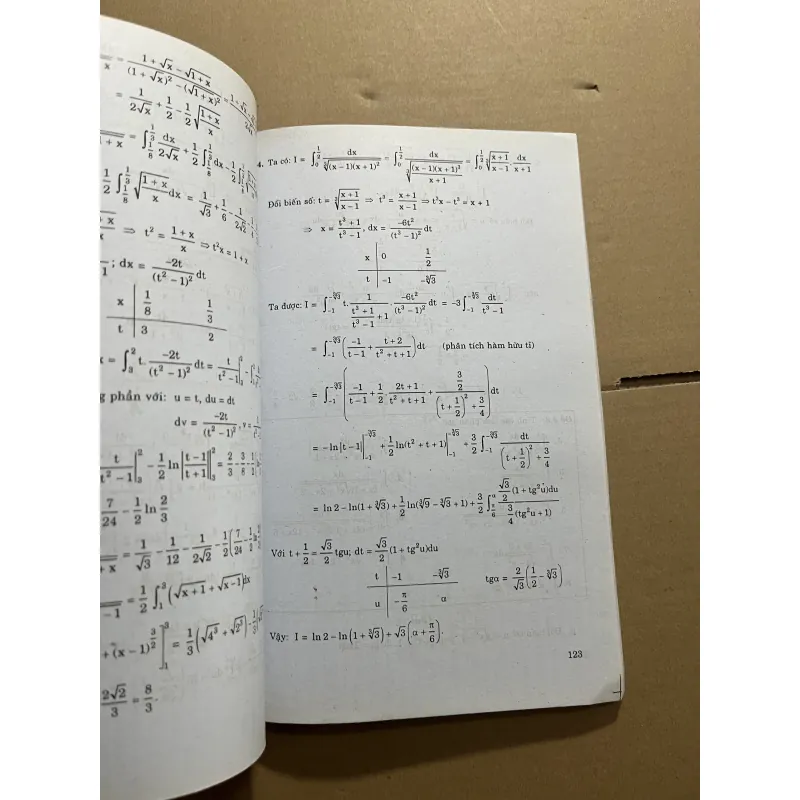 = \frac{1+\sqrt{x}-\sqrt{1+x}}{(1+\sqrt{x})^2-(\sqrt{1+x})^2} =
= \frac{1}{2\sqrt{x}}+\frac{1}{2}-\frac{1}{2}\sqrt{\frac{1+x}{x}}
= \int_{\frac{1}{8}}^{\frac{1}{3}}\frac{dx}{2\sqrt{x}}+\frac{1}{2}\int_{\frac{1}{8}}^{\frac{1}{3}}dx-\frac{1}{2}\int_{\frac{1}{8}}^{\frac{1}{3}}
\frac{1}{2}\int_{\frac{1}{8}}^{\frac{1}{3}}\sqrt{\frac{1+x}{x}}dx = \frac{1}{\sqrt{3}}+\frac{1}{6}-\frac{1}{2\sqrt{2}}
⇒ t^2 = \frac{1+x}{x} ⇒ t^2x = 1+x
; dx = \frac{-2t}{(t^2-1)^2}dt
x | \frac{1}{8} \frac{1}{3}
t | 3 2
= \int_3^2 t.\frac{-2t}{(t^2-1)^2}dt = \frac{t}{t^2-1}|_3^2
phần với: u = t, du = dt
dv = \frac{-2t}{(t^2-1)^2}, v =
\frac{t}{t^2-1}|_3^2 - \frac{1}{2}\ln|\frac{t-1}{t+1}|_3^2 = \frac{2}{3}-\frac{3}{8}-
\frac{7}{24}-\frac{1}{2}\ln\frac{2}{3}
= \frac{1}{\sqrt{3}}-\frac{1}{12}-\frac{1}{2\sqrt{2}}-\frac{1}{2}(\frac{7}{24}-
= \frac{1}{2}\int_1^3(\sqrt{x+1}+\sqrt{x-1})dx
+(x-1)^{\frac{3}{2}}]_1^3 = \frac{1}{3}(\sqrt{4^3}+\sqrt{2^3})-\frac{1}{3}
\frac{2\sqrt{2}}{3} = \frac{8}{3}.
4. Ta có: I = \int_0^{\frac{1}{2}}\frac{dx}{\sqrt[3]{(x-1)(x+1)^2}} = \int_0^{\frac{1}{2}}\frac{dx}{\sqrt[3]{\frac{(x-1)(x+1)^2}{x+1}}} = \int_0^{\frac{1}{2}}\sqrt[3]{\frac{x+1}{x-1}}.\frac{dx}{x+1}
Đổi biến số: t = \sqrt[3]{\frac{x+1}{x-1}} ⇒ t^3 = \frac{x+1}{x-1} ⇒ t^3x - t^3 = x + 1
⇒ x = \frac{t^3+1}{t^3-1}, dx = \frac{-6t^2}{(t^3-1)^2}dt
x | 0 \frac{1}{2}
t | -1 -\sqrt[3]{3}
Ta được: I = \int_{-1}^{-\sqrt[3]{3}} t.\frac{1}{\frac{t^3+1}{t^3-1}+1}.\frac{-6t^2}{(t^3-1)^2}dt = -3\int_{-1}^{-\sqrt[3]{3}}\frac{dt}{t^3-1}
= \int_{-1}^{-\sqrt[3]{3}}(\frac{-1}{t-1}+\frac{t+2}{t^2+t+1})dt (phân tích hàm hữu tỉ)
= \int_{-1}^{-\sqrt[3]{3}}(\frac{-1}{t-1}+\frac{1}{2}.\frac{2t+1}{t^2+t+1}+\frac{\frac{3}{2}}{(t+\frac{1}{2})^2+\frac{3}{4}})dt
= -\ln|t-1||_{-1}^{-\sqrt[3]{3}}+\frac{1}{2}\ln(t^2+t+1)|_{-1}^{-\sqrt[3]{3}}+\frac{3}{2}\int_{-1}^{-\sqrt[3]{3}}\frac{dt}{(t+\frac{1}{2})^2+\frac{3}{4}}
= \ln 2-\ln(1+\sqrt[3]{3})+\frac{1}{2}\ln(\sqrt[3]{9}-\sqrt[3]{3}+1)+\frac{3}{2}\int_{\frac{π}{6}}^{α}\frac{\frac{\sqrt{3}}{2}(1+tg^2u)du}{\frac{3}{4}(tg^2u+1)}
Với t+\frac{1}{2} = \frac{\sqrt{3}}{2}tgu; dt = \frac{\sqrt{3}}{2}(1+tg^2u)du
t | -1 -\sqrt[3]{3} tgα = \frac{2}{\sqrt{3}}(\frac{1}{2}-\sqrt[3]{3})
u | -\frac{π}{6} α
Vậy: I = \ln 2-\ln(1+\sqrt[3]{3})+\sqrt{3}(α+\frac{π}{6}).
123